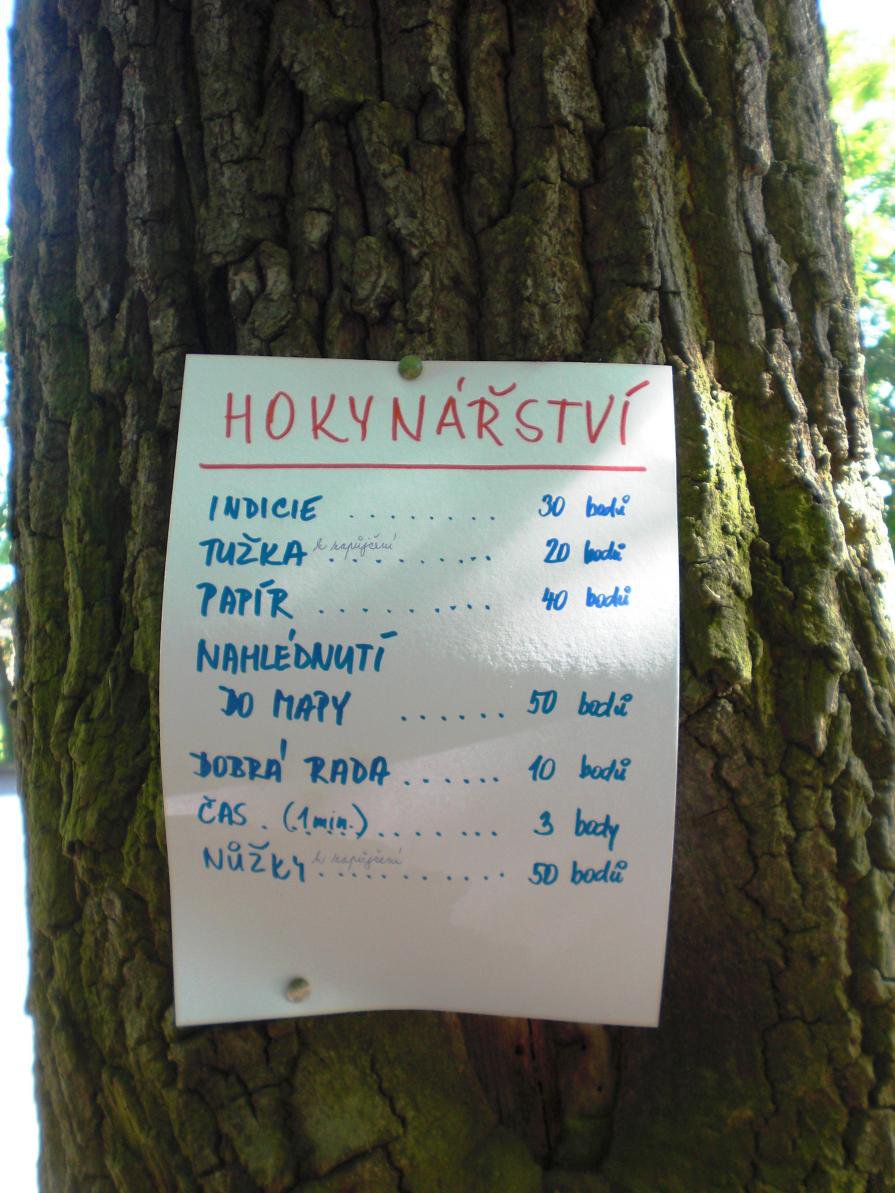 HOKYNÁŘSTVÍ
INDICIE ........ 30 bodů
TUŽKA k zapůjčení ......... 20 bodů
PAPÍR ......... 40 bodů
NAHLÉDNUTÍ
DO MAPY ...... 50 bodů
DOBRÁ RADA ...... 10 bodů
ČAS . (1min.) ....... 3 body
NŮŽKY k zapůjčení .......... 50 bodů